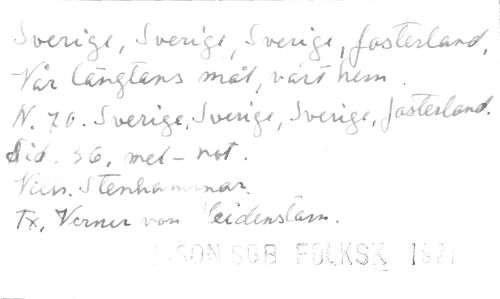 Sverige, Sverige, Sverige, fosterland,
Vår längtans mål, vårt hem
N. 70. Sverige, Sverige, Sverige, fosterland.
Sid. 56, mel-not.
Vilh. Stenhammar.
Tx, Verner von Heidenstam.
SON SGB FOLKSK 192